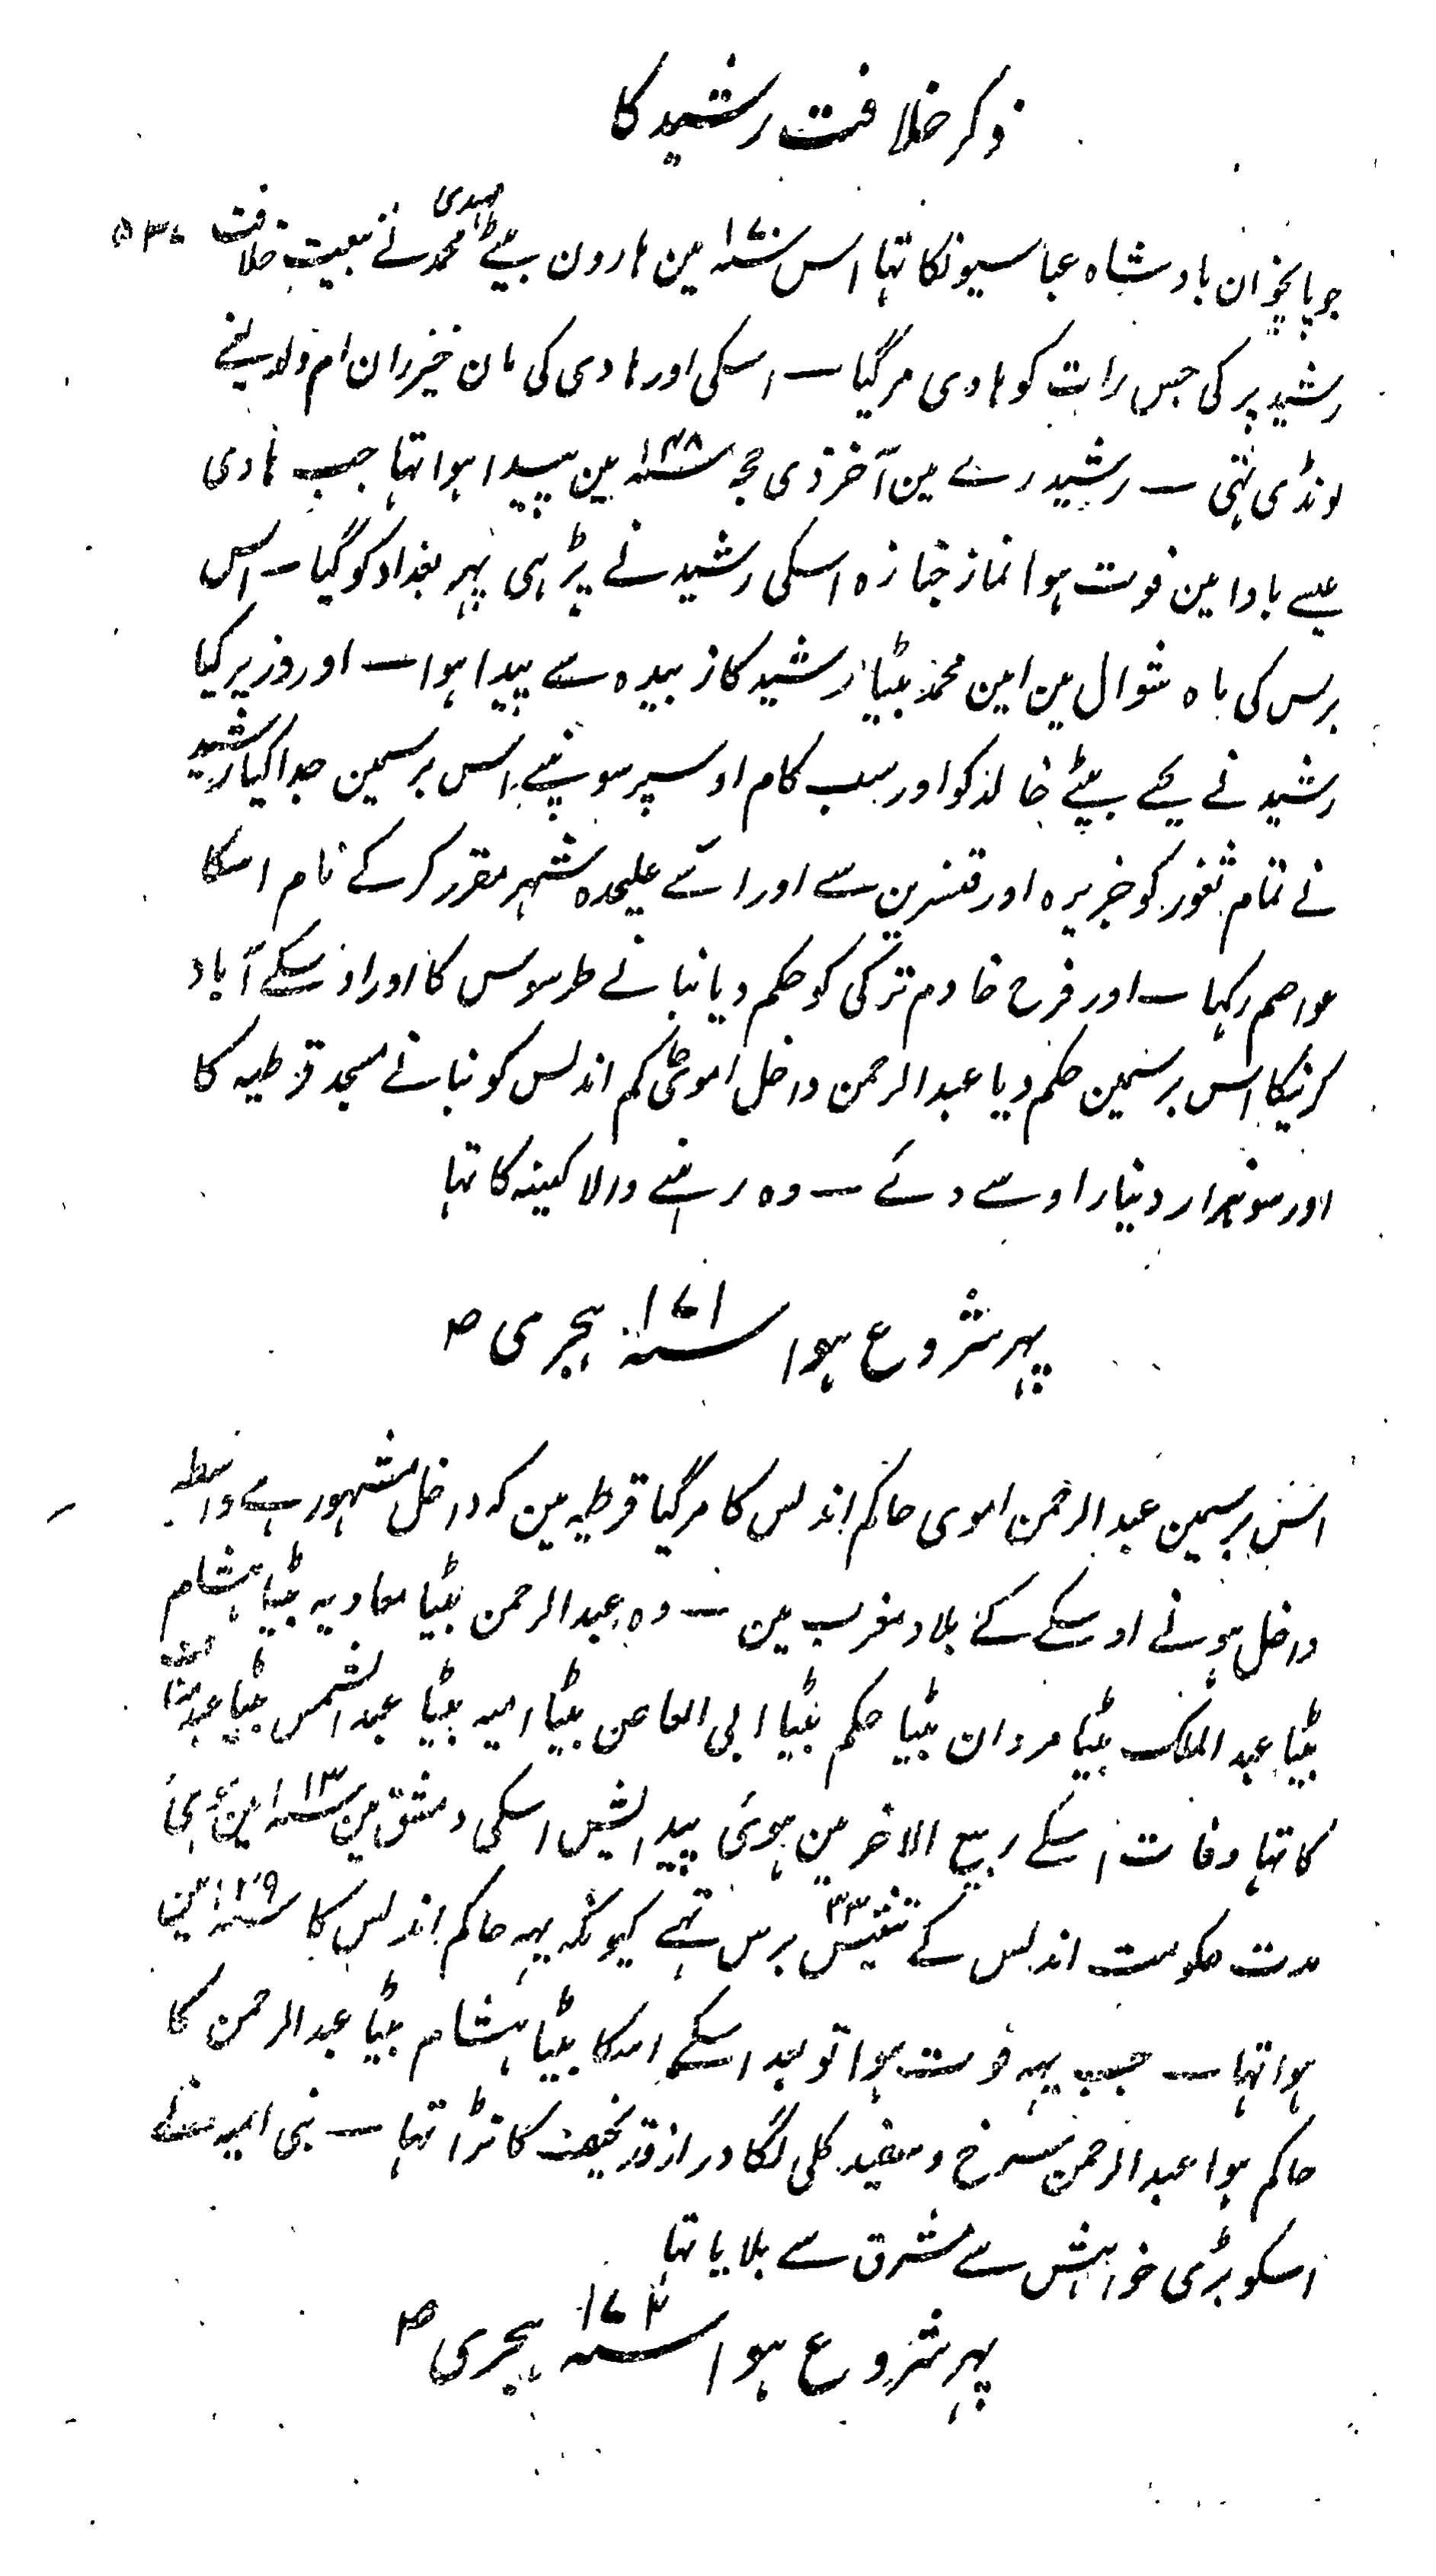 ذکر خلافت رشید کا
جو پانچوان بادشاہ عباسیونکا تہا اس سنہ ۱۷۰ مین ہارون بیٹے محمد مہدی نے بیعت خلافت
رشید پر کی جس رات کو ہادی مرگیا ۔ اسکی اور ہادی کی مان خیزران ام ولد یعنے
لونڈی تہی ۔ رشید رے مین آخر ذی حجہ سنہ ۱۴۸ مین پیدا ہوا تہا جب ہادی
عیسے بادا مین فوت ہوا نماز جنازہ اسکی رشید نے پڑہی پہر بغداد کو گیا ۔ اس
برس کی ماہ شوال مین امین محمد بیٹا رشید کا زبیدہ سے پیدا ہوا ۔ اور وزیر کیا
رشید نے یحیے بیٹے خالد کو اور سب کام اوسپر سونپے اس برسمین جدا کیا رشید
نے تمام ثغور کو جزیرہ اور قنسرین سے اور اسے علیحدہ شہر مقرر کرکے نام اسکا
عواصم رکہا ۔ اور فرح خادم ترکی کو حکم دیا بنانے طرسوس کا اور اوسکے آباد
کرنیکا اس برسمین حکم دیا عبدالرحمن داخل اموی حاکم اندلس کو بنانے مسجد قرطبہ کا
اور سو ہزار دینار اوسے دے ۔ وہ رہنے والا کینہ کا تہا
پہر شروع ہوا سنہ ۱۷۱ ہجری
اس برسمین عبدالرحمن اموی حاکم اندلس کا مرگیا قرطبہ مین کہ داخل مشہور ہے واسطہ
داخل ہونے اوسکے کے بلاد مغرب مین ۔ وہ عبدالرحمن بیٹا معاویہ بیٹا ہشام
بیٹا عبدالملک بیٹا مروان بیٹا حکم بیٹا ابی العاص بیٹا امیہ بیٹا عبدالشمس بیٹا عبد مناف
کا تہا وفات اسکے ربیع الاخر مین ہوئی پیدایش اسکی دمشق مین سنہ ۱۱۳ مین ہوئی
مدت حکومت اندلس کے تنتیس ۳۳ برس تہے کیونکہ یہہ حاکم اندلس کا سنہ ۱۳۹ مین
ہوا تہا ۔ جب یہہ فوت ہوا تو بعد اسکے اسکا بیٹا ہشام بیٹا عبدالرحمن کا
حاکم ہوا عبدالرحمن سرخ و سفید دراز قد نحیف کا تہا ۔ بنی امیہ نے
اسکو بڑی خواہش سے مشرق سے بلایا تہا
پہر شروع ہوا سنہ ۱۷۲ ہجری